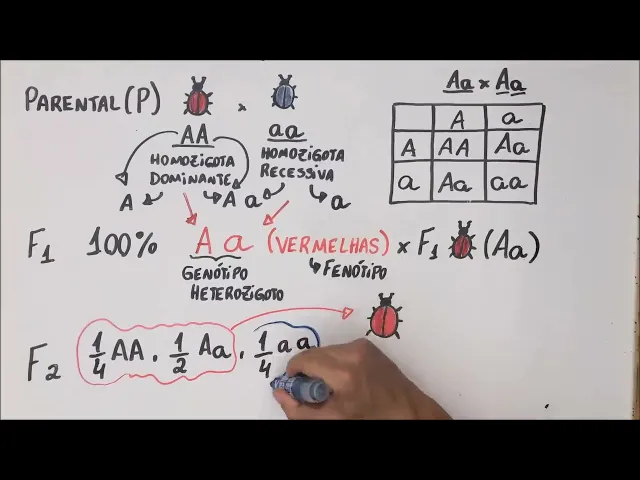 PARENTAL (P) x
AA aa
HOMOZIGOTA DOMINANTE
HOMOZIGOTA RECESSIVA
A A a a
Aa x Aa
A a
A AA Aa
a Aa aa
F1 100% A a (VERMELHAS) x F1 (Aa)
GENÓTIPO HETEROZIGOTO
FENÓTIPO
F2 1/4 AA . 1/2 Aa . 1/4 aa